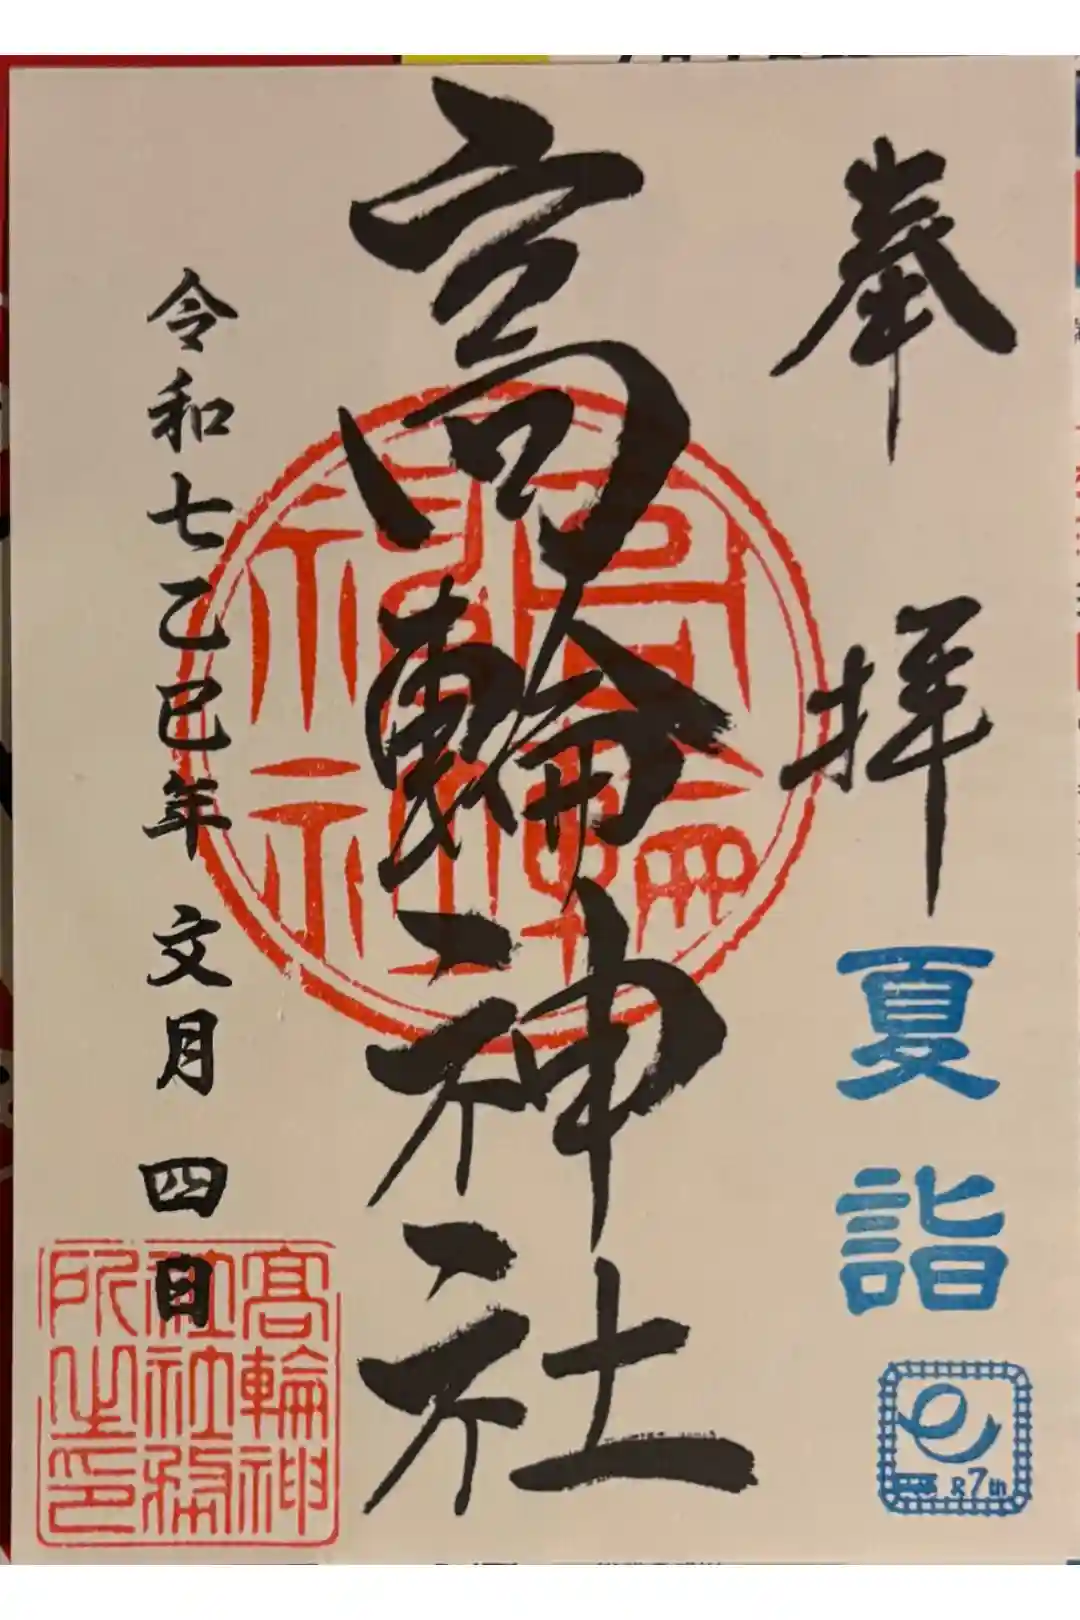 奉拝
夏詣
R7th
高輪神社
令和七乙巳年 文月 四日
高輪神
社社務
所之印